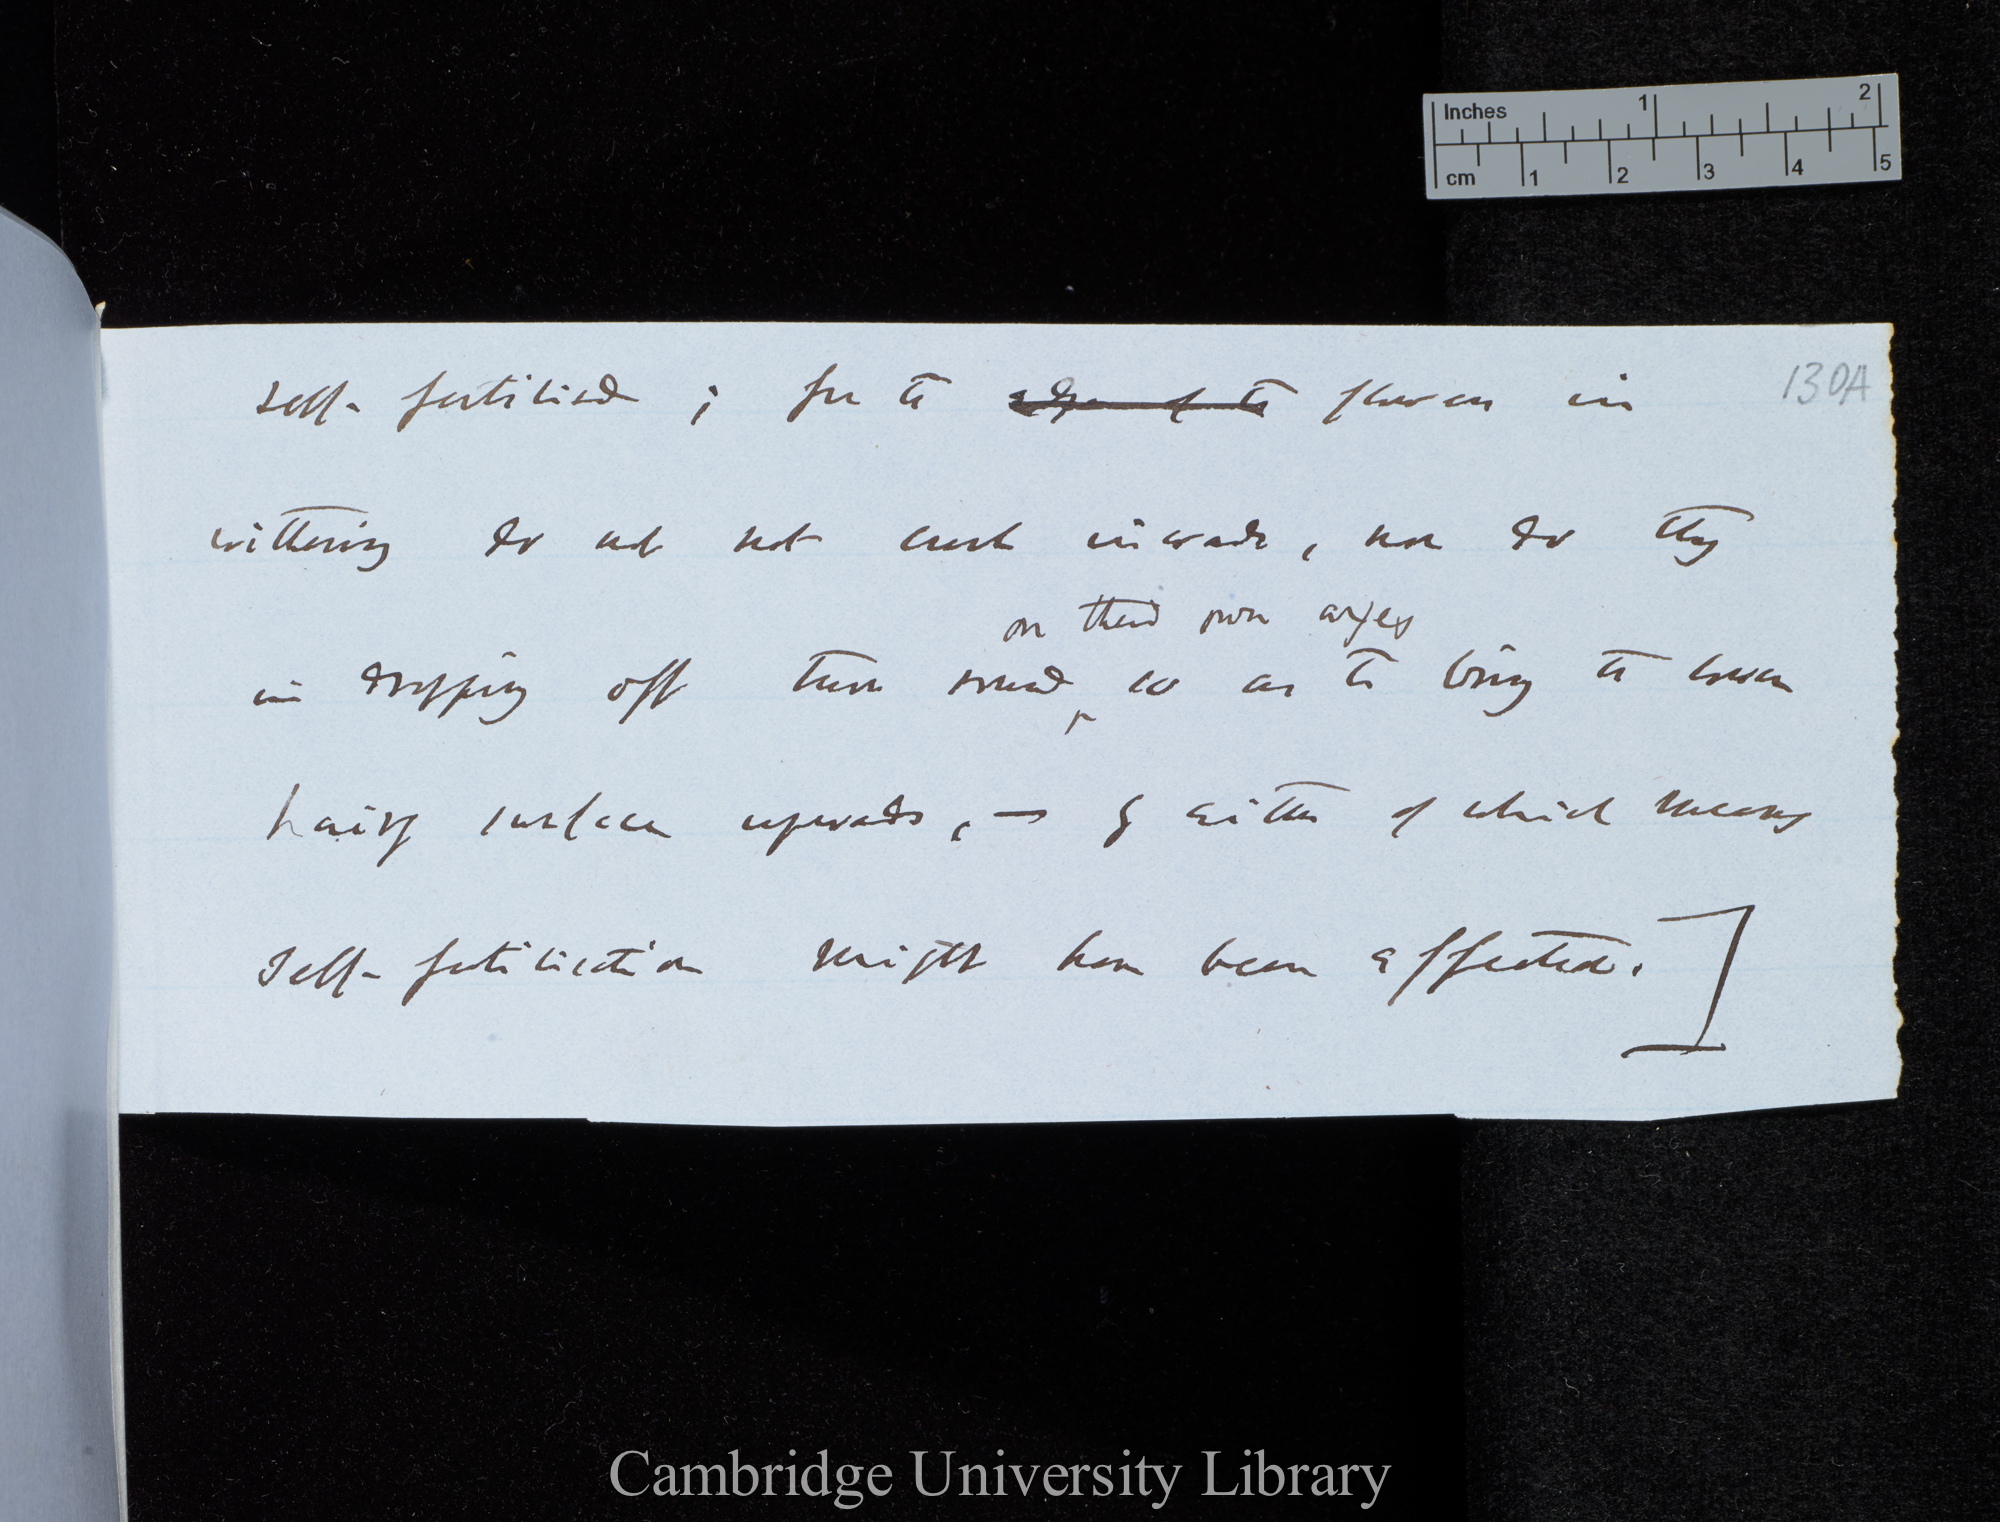 Inches 1 2
cm 1 2 3 4 5
130A
self-fertilised; for the edges of the flowers in
withering do not not curl inwards, nor do they
on their own axes
in dropping off turn round so as to bring the lower
hairy surface upwards, — by either of which means
self-fertilisation might have been effected.]
Cambridge University Library